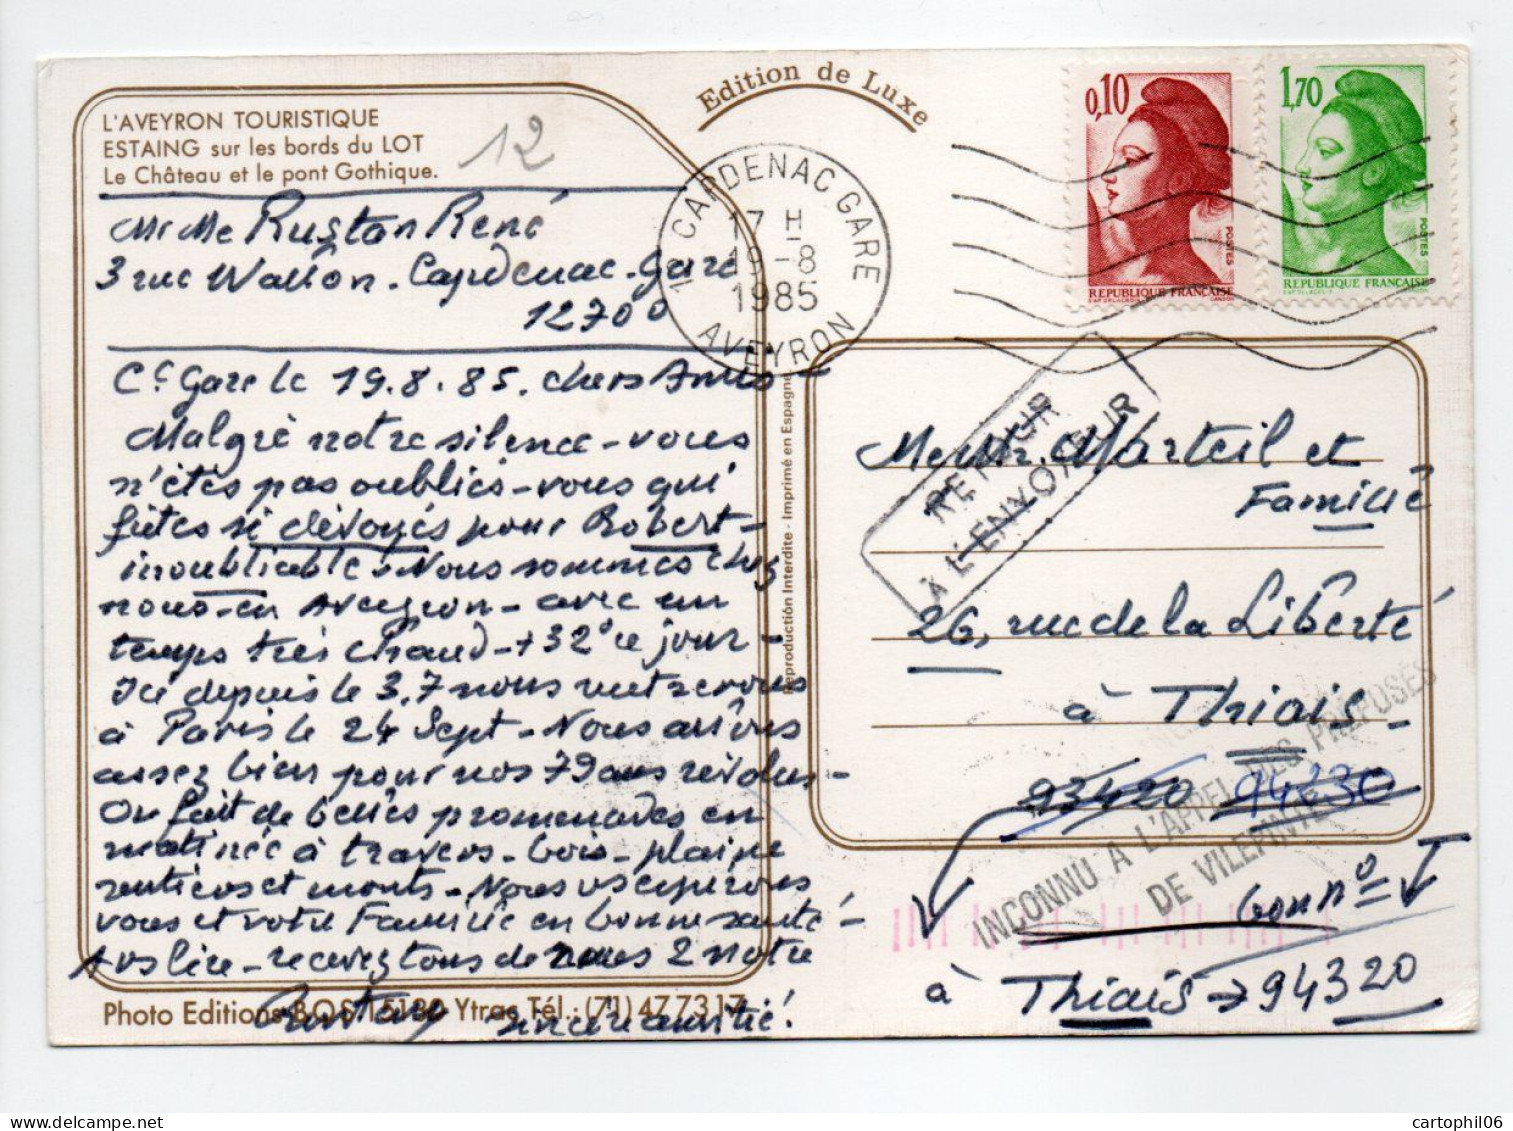 L'AVEYRON TOURISTIQUE
ESTAING sur les bords du LOT
Le Château et le pont Gothique.
12
Mr Me Rustan René
3 rue Wallon - Capdenac-Gare
12700
Cc Gare le 19.8.85. chers Amis
Malgré notre silence - vous
n'êtes pas oubliés - vous qui
fûtes si dévoyés pour Robert -
inoubliable. Nous sommes chez
nous - en Aveyron - avec un
temps très chaud - +32° ce jour -
Ici depuis le 3.7 nous rentrerons
à Paris le 24 Sept - Nous allons
assez bien pour nos 79 ans révolus -
On fait de belles promenades en
matinée à travers - bois - plaine
sentiers et monts - Nous espérons
vous et votre Famille en bonne santé -
A vs lire - recevez tous de nous 2 notre
sincère amitié!
Rustan
Photo Editions BOS 15130 Ytrac Tél.: (71) 47 73 17
Edition de Luxe
12 CAPDENAC GARE
17 H
19-8
1985
AVEYRON
Reproduction Interdite - Imprimé en Espagne
0,10
POSTES
REPUBLIQUE FRANÇAISE
1,70
POSTES
REPUBLIQUE FRANÇAISE
RETOUR
À L'ENVOYEUR
Me Mr. Marteil et
Famille
26, rue de la Liberté
à Thiais -
93420 94430
INCONNU A L'APPEL DES PREPOSÉS
DE VILEPINTE
bon n°
à Thiais → 94320
cartophil06